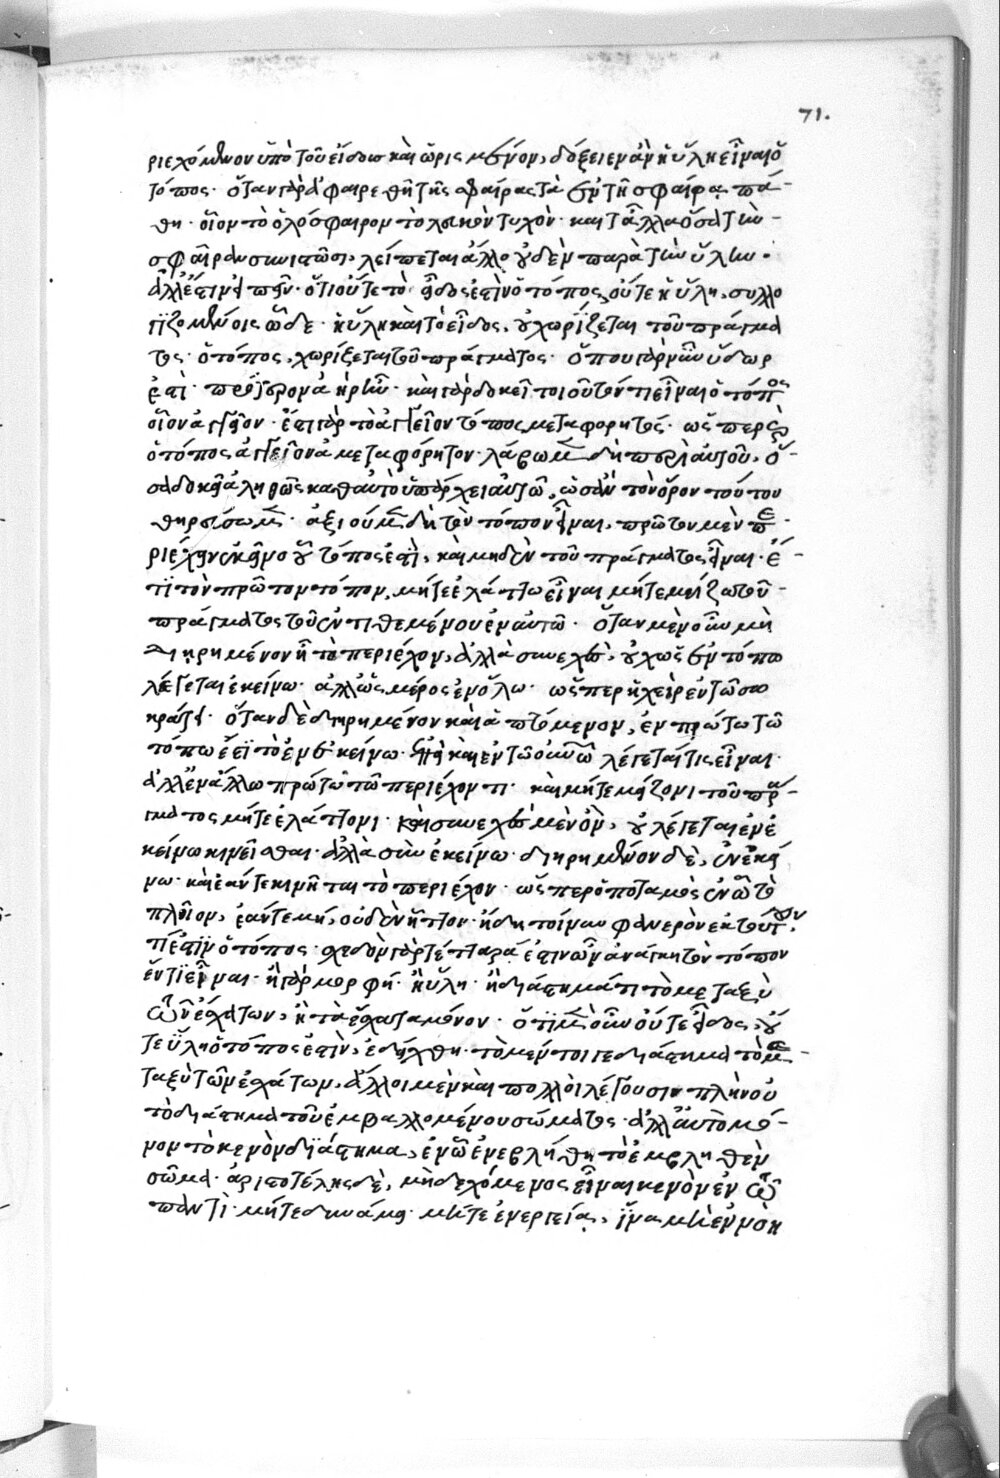 71.
ριεχόμενον ὑπὸ τοῦ εἴδους καὶ ὡρισμένον, δόξειεν ἂν ἡ ὕλη εἶναι ὁ
τόπος· ὅταν γὰρ ἀφαιρεθῇ τῆς σφαίρας τὰ ἐν τῇ σφαίρᾳ πά-
θη· οἷον τὸ ὁλόσφαιρον τὸ λευκὸν τυχὸν· καὶ τἄλλα ὅσα τὴν
σφαῖραν συνιστῶσι, λείπεται ἄλλο οὐδὲν παρὰ τὴν ὕλην.
ἀλλ' ἔστιν εἰπεῖν· ὅτι οὔτε τὸ εἶδος ἐστὶν ὁ τόπος, οὔτε ἡ ὕλη, συλλο
γιζομένοις ὧδε· ἡ ὕλη καὶ τὸ εἶδος, οὐ χωρίζεται τοῦ πράγμα
τος· ὁ τόπος, χωρίζεται τοῦ πράγματος· ὅπου γὰρ νῦν ὕδωρ
ἐστὶ· πρότερον ἀὴρ ἦν· καὶ γὰρ δοκεῖ τοιοῦτόν τι εἶναι ὁ τόπος
οἷον ἀγγεῖον· ἔστι γὰρ τὸ ἀγγεῖον τόπος μεταφορητός· ὥσπερ
ὁ τόπος ἀγγεῖον ἀμεταφόρητον· λάβωμεν δὴ περὶ αὐτοῦ, ὅ-
σα δοκεῖ ἀληθῶς καθ' αὑτὸ ὑπάρχειν αὐτῷ, ὡς ἂν τὸν ὅρον τούτου
θηρεύσωμεν· ἀξιοῦμεν δὴ τὸν τόπον εἶναι, πρῶτον μὲν πε-
ριέχειν ἐκεῖνο οὗ τόπος ἐστὶ, καὶ μηδὲν τοῦ πράγματος εἶναι· ἔ-
τι τὸν πρῶτον τόπον, μήτε ἐλάττω εἶναι μήτε μείζω τοῦ
πράγματος τοῦ ἐντιθεμένου ἐν αὐτῷ· ὅταν μὲν οὖν μὴ
διῃρημένον ᾖ τὸ περιέχον, ἀλλὰ συνεχὲς, οὐχ ὡς ἐν τόπῳ
λέγεται ἐκείνῳ· ἀλλ' ὡς μέρος ἐν ὅλῳ· ὥσπερ ἡ χεὶρ ἐν τῷ σω
κράτει· ὅταν δὲ διῃρημένον καὶ ἁπτόμενον, ἐν πρώτῳ τῷ
τόπῳ ἐστὶ τὸ ἐν ἐκείνῳ· καὶ ἐν τῷ οὐρανῷ λέγεταί τις εἶναι·
ἀλλ' ἐν ἄλλῳ πρώτῳ τῷ περιέχοντι· καὶ μήτε μείζονι τοῦ πρά-
γματος μήτε ἐλάττονι· καὶ συνεχὲς μὲν ὂν, οὐ λέγεται ἐν ἐ
κείνῳ κινεῖσθαι· ἀλλὰ σὺν ἐκείνῳ· διῃρημένον δὲ, ἐν ἐκεί
νῳ· καὶ ἐάν τε κινῆται τὸ περιέχον· ὥσπερ ὁ ποταμὸς ἐν ᾧ τὸ
πλοῖον, ἐάν τε μή, οὐδὲν ἧττον· ἤδη τοίνυν φανερὸν ἐκ τούτων,
τί ἐστιν ὁ τόπος· σχεδὸν γὰρ τέτταρά ἐστιν ὧν ἀνάγκη τὸν τόπον
ἕν τι εἶναι· ἢ γὰρ μορφή· ἢ ὕλη· ἢ διάστημά τι τὸ μεταξὺ
τῶν ἐσχάτων, ἢ τὰ ἔσχατα μόνον· ὅτι μὲν οὖν οὔτε εἶδος, οὔ
τε ὕλη ὁ τόπος ἐστὶν, ἐδείχθη· τὸ μέν τοι γε διάστημα τὸ με-
ταξὺ τῶν ἐσχάτων, ἄλλοι μὲν καὶ πολλοὶ λέγουσιν πλὴν οὐ
τὸ διάστημα τοῦ ἐμβαλλομένου σώματος· ἀλλ' αὐτὸ μό-
νον τὸ κενὸν διάστημα, ἐν ᾧ ἐνεβλήθη τὸ ἐμβληθὲν
σῶμα· ἀριστοτέλης δὲ, μὴ δεχόμενος εἶναι κενὸν ἐν τῷ
παντὶ· μήτε δυνάμει· μήτε ἐνεργείᾳ, ἵνα μὴ ἐννοὴ